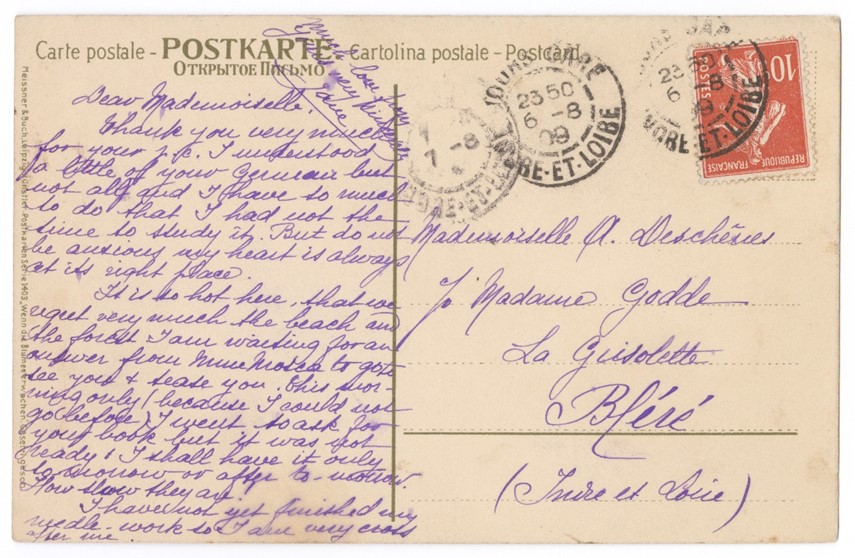 Carte postale - POSTKARTE - Cartolina postale - Postcard
ОТКРЫТОЕ ПИСЬМО
Dear Mademoiselle,
Thank you very much
for your p.c. I understood
a little of your German but
not all and I have so much
to do that I had not the
time to study it. But do not
be anxious my heart is always
at its right place.
It is so hot here, that we
regret very much the beach and
the forest I am waiting for an
answer from Mme Mosca to go to
see you & tease you. This mor-
ning only (because I could not
go before) I went to ask for
your book but it was not
ready & I shall have it only
to-morrow or after to-morrow
How slow they are.
I have not yet finished my
needle-work so I am very cross
after me.
Much love from
yours very
Jane
Mademoiselle A. Deschênes
c/o Madame Godde
La Guisolette
Bléré
(Indre et Loire)
TOURS GARE
23 50
6 -8
09
INDRE-ET-LOIRE
TOURS GARE
23 50
6 -8
09
INDRE-ET-LOIRE
7 -8
INDRE-ET-LOIRE
10
POSTES
REPUBLIQUE FRANÇAISE
Meissner & Buch, Leipzig. Künstler-Postkarten Serie 1403. "Wenn die Blumen erwachen"